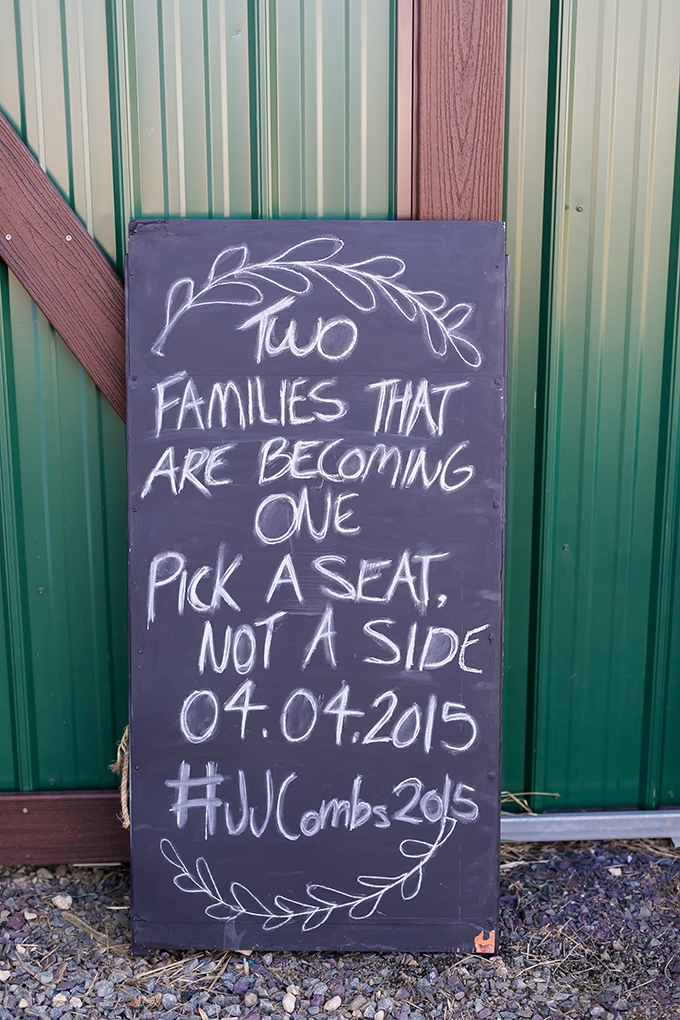 TWO
FAMILIES THAT
ARE BECOMING
ONE
PICK A SEAT,
NOT A SIDE
04.04.2015
#JJCombs2015